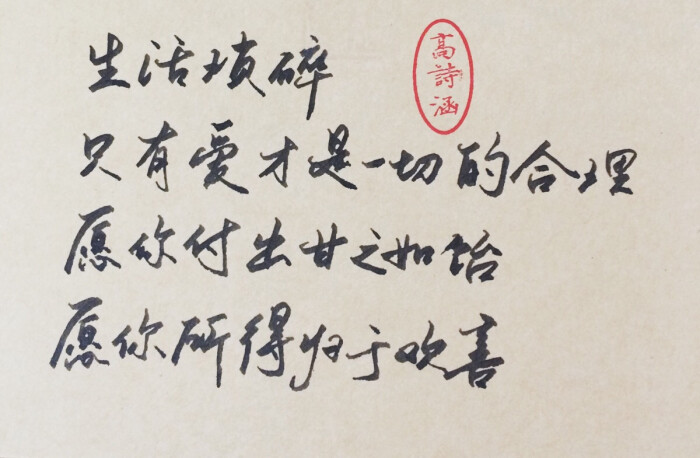 生活琐碎
高詩涵
只有爱才是一切的合理
愿你付出甘之如饴
愿你所得归于欢喜